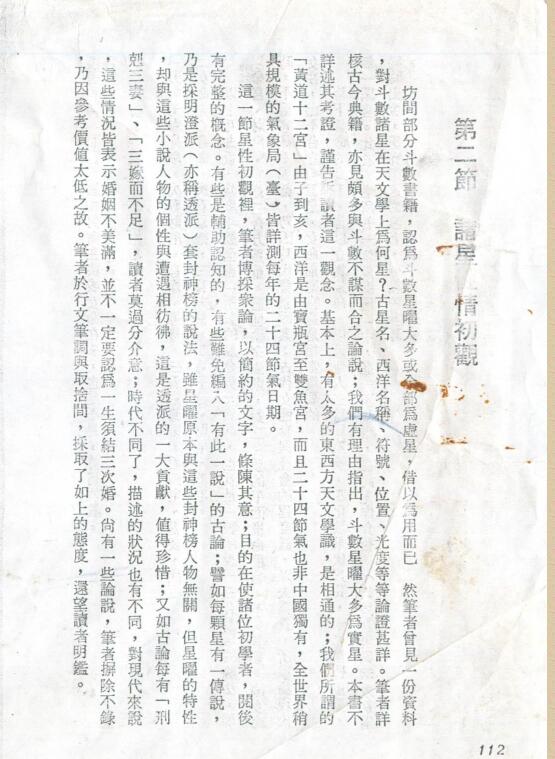 第二節　諸星　情初觀
坊間部分斗數書籍，認爲斗數星曜大多或全部爲虛星，借以爲用而已　然筆者曾見一份資料
，對斗數諸星在天文學上爲何星？古星名、西洋名稱、符號、位置、光度等等論證甚詳。筆者詳
核古今典籍，亦見頗多與斗數不謀而合之論說；我們有理由指出，斗數星曜大多爲實星。本書不
詳述其考證，謹告訴讀者這一觀念。基本上，有太多的東西方天文學識，是相通的；我們所謂的
「黃道十二宮」由子到亥，西洋是由寶瓶宮至雙魚宮，而且二十四節氣也非中國獨有，全世界稍
具規模的氣象局（臺）皆詳測每年的二十四節氣日期。
這一節星性初觀裡，筆者博採衆論，以簡約的文字，條陳其意；目的在使諸位初學者，閱後
有完整的概念。有些是輔助認知的，有些難免編入「有此一說」的古論；譬如每顆星有一傳說，
乃是採明澄派（亦稱透派）套封神榜的說法，雖星曜原本與這些封神榜人物無關，但星曜的特性
，却與這些小說人物的個性與遭遇相彷彿，這是透派的一大貢獻，值得珍惜；又如古論每有「刑
剋三妻」、「三嫁而不足」，讀者莫過分介意；時代不同了，描述的狀況也有不同，對現代來說
，這些情況皆表示婚姻不美滿，並不一定要認爲一生須結三次婚。尙有一些論說，筆者摒除不錄
，乃因參考價值太低之故。筆者於行文筆調與取捨間，採取了如上的態度，還望讀者明鑑。
112